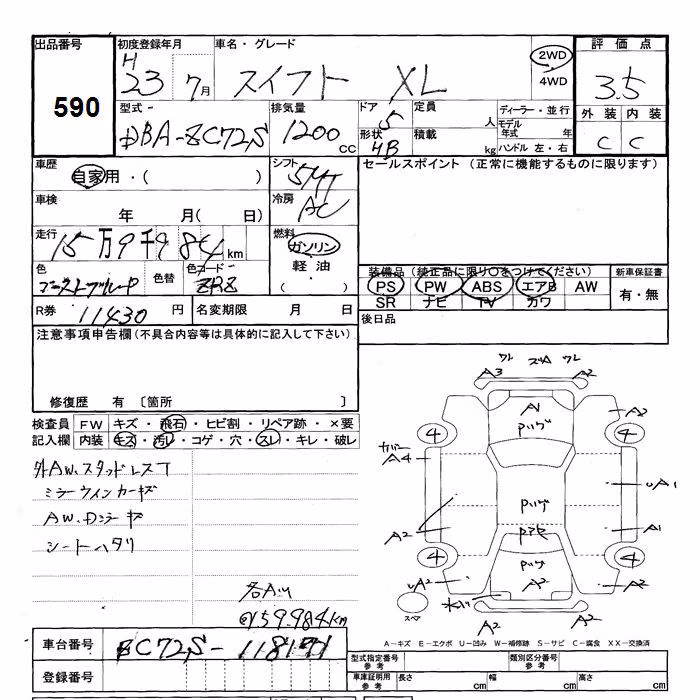 出品番号
590
初度登録年月
H
23 7月
車名・グレード
スイフト XL
2WD
4WD
評価点
3.5
外装 内装
C C
型式
DBA-ZC72S
排気量
1200
CC
ドア
5
定員
人
形状
HB
積載
kg
ディーラー・並行
モデル年式 年
ハンドル 左・右
車歴
自家用・( )
シフト
5MT
セールスポイント (正常に機能するものに限ります)
車検
年 月( 日)
冷房
AC
走行
15万9千984km
燃料
ガソリン
軽油
( )
色
ブーストブルーP
色替
色コード
装備品 (純正品に限り○をつけてください)
PS PW ABS エアB AW
SR ナビ TV カワ
新車保証書
有・無
R券
11430円
名変期限 月 日
後日品
注意事項申告欄(不具合内容等は具体的に記入して下さい)
修復歴 有 〔箇所 〕
検査員
記入欄
FW キズ・飛石・ヒビ割・リペア跡・×要
内装 キズ・汚レ・コゲ・穴・スレ・キレ・破レ
外AW、スタッドレスT
ミラーウインカーキズ
AW、Dミラーキズ
シートヘタリ
@159.984km
ワレ ズA ワレ
A3 A2
A2
A1
Pハゲ
4 4
カバー
A4
UA1
Pハゲ
A2 A1
4 4
Pハゲ
UA2 A2 A2
スペア
A2 A2
A-キズ E-エクボ U-凹み W-補修跡 S-サビ C-腐食 XX-交換済
車台番号
ZC72S-118171
登録番号
型式指定番号
参考
類別区分番号
参考
車庫証明用
参考
長さ cm 幅 cm 高さ cm